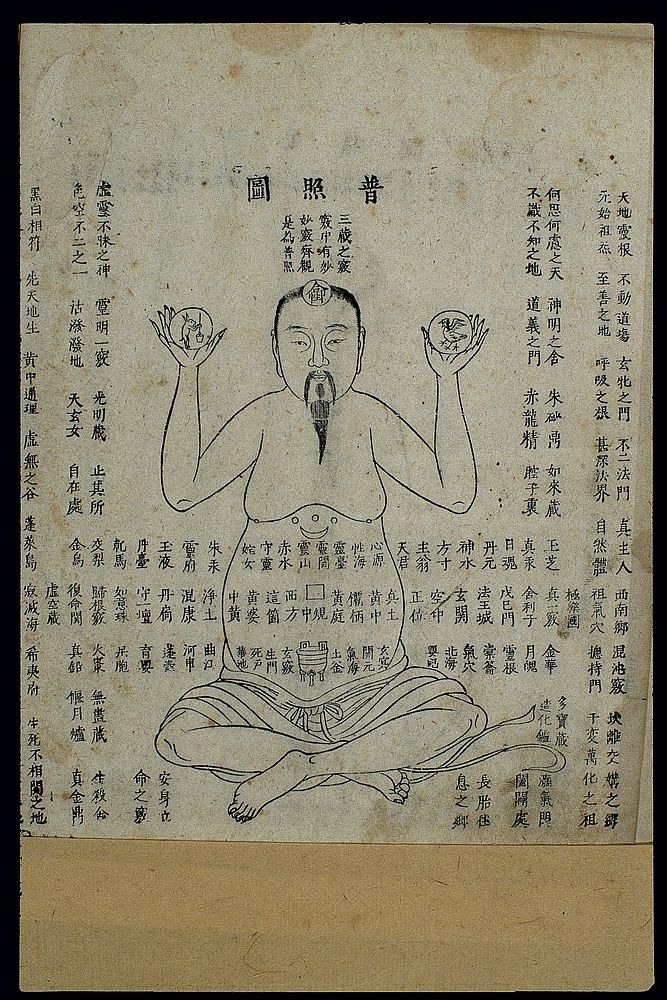 普照圖
三歲之竅
竅中有妙
妙竅齊觀
是為普照
天地靈根 不動道場 玄牝之門 不二法門 真主人 西南鄉 混沌竅 坎離交媾之鄉
元始祖炁 至善之地 呼吸之根 甚深法界 自然體 祖氣穴 總持門 千變萬化之祖
極樂國
何思何慮之天 神明之舍 朱砂鼎 如來藏 玉芝 真一竅 金華
不識不知之地 道義之門 赤龍精 腔子裏 真汞 舍利子 月魄
多寶藏
造化鑪
灝氣門
闔闢處
日魂 戊己門 靈根
丹元 法王城
神水 玄關 氣穴
方寸 空中 北海
主翁 正位 嬰兒
天君
長胎住
息之鄉
心源 真土 玄冥
性海 黃中 關元
靈臺 欛柄 氣海
靈關 黃庭 土釜
靈山 規中
赤水 西方 玄竅
守靈 這箇 生門
姹女 黃婆 死戶
中黃 華池
朱汞 淨土 曲江
靈府 混康 河車
玉液 丹扃 蓬壺
丹臺 守一壇 育嬰
龍馬 如意珠
安身立
命之竅
虛靈不昧之神 靈明一竅 光明藏 止其所 交梨 歸根竅 火棗 無盡藏 生殺舍
色空不二之一 活潑潑地 天玄女 自在處 金烏 復命關 真鉛 偃月爐 真金鼎
虛空藏
黑白相符 先天地生 黃中通理 虛無之谷 蓬萊島 寂滅海 希夷府 生死不相關之地